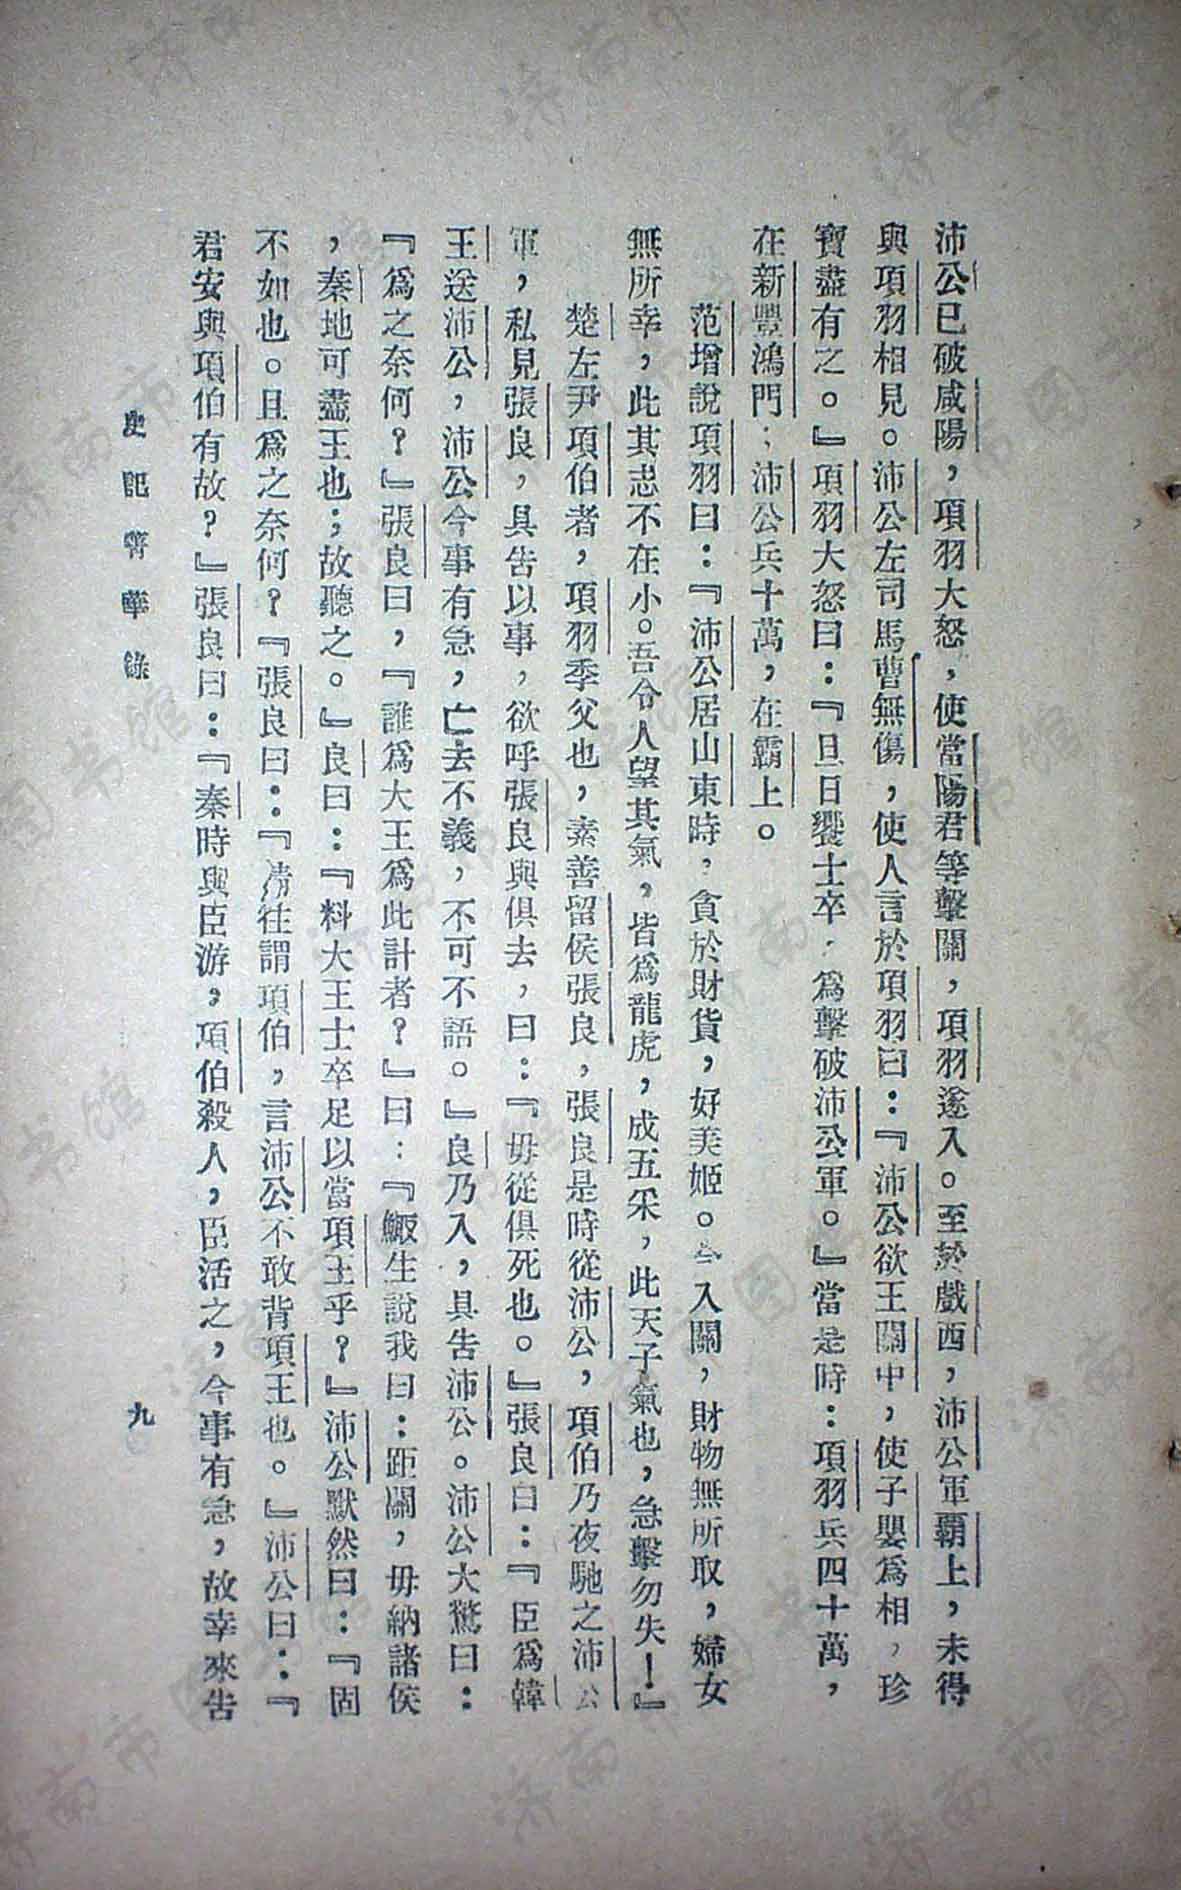 沛公已破咸陽，項羽大怒，使當陽君等擊關，項羽遂入。至於戲西，沛公軍霸上，未得
與項羽相見。沛公左司馬曹無傷，使人言於項羽曰：『沛公欲王關中，使子嬰爲相，珍
寶盡有之。』項羽大怒曰：『旦日饗士卒，爲擊破沛公軍。』當是時：項羽兵四十萬，
在新豐鴻門；沛公兵十萬，在霸上。
范增說項羽曰：『沛公居山東時，貪於財貨，好美姬。今入關，財物無所取，婦女
無所幸，此其志不在小。吾令人望其氣，皆爲龍虎，成五采，此天子氣也，急擊勿失！』
楚左尹項伯者，項羽季父也，素善留侯張良，張良是時從沛公，項伯乃夜馳之沛公
軍，私見張良，具告以事，欲呼張良與俱去，曰：『毋從俱死也。』張良曰：『臣爲韓
王送沛公，沛公今事有急，亡去不義，不可不語。』良乃入，具告沛公。沛公大驚曰：
『爲之奈何？』張良曰，『誰爲大王爲此計者？』曰：『鯫生說我曰：距關，毋納諸侯
，秦地可盡王也；故聽之。』良曰：『料大王士卒足以當項王乎？』沛公默然曰：『固
不如也。且爲之奈何？『張良曰：『請往謂項伯，言沛公不敢背項王也。』沛公曰：『
君安與項伯有故？』張良曰：『秦時與臣游，項伯殺人，臣活之，今事有急，故幸來告
史記菁華錄
九
济南市图书馆